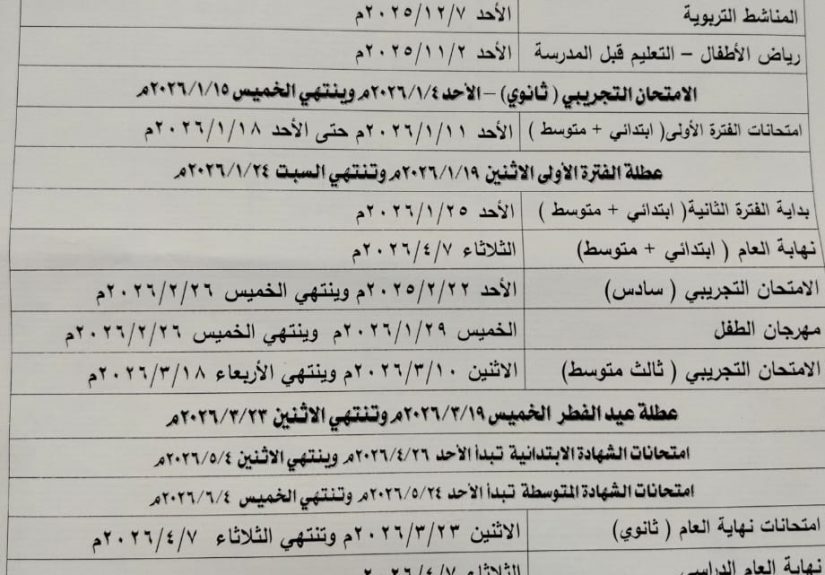 المناشط التربوية الأحد ٢٠٢٥/١٢/٧م
رياض الأطفال – التعليم قبل المدرسة الأحد ٢٠٢٥/١١/٢م
الامتحان التجريبي ( ثانوي) – الأحد ٢٠٢٦/١/٤م وينتهي الخميس ٢٠٢٦/١/١٥م
امتحانات الفترة الأولى( ابتدائي + متوسط ) الأحد ٢٠٢٦/١/١١م حتى الأحد ٢٠٢٦/١/١٨م
عطلة الفترة الأولى الاثنين ٢٠٢٦/١/١٩م وتنتهي السبت ٢٠٢٦/١/٢٤م
بداية الفترة الثانية( ابتدائي + متوسط ) الأحد ٢٠٢٦/١/٢٥م
نهاية العام ( ابتدائي + متوسط) الثلاثاء ٢٠٢٦/٤/٧م
الامتحان التجريبي ( سادس) الأحد ٢٠٢٥/٢/٢٢م وينتهي الخميس ٢٠٢٦/٢/٢٦م
مهرجان الطفل الخميس ٢٠٢٦/١/٢٩م وينتهي الخميس ٢٠٢٦/٢/٢٦م
الامتحان التجريبي ( ثالث متوسط) الاثنين ٢٠٢٦/٣/١٠م وينتهي الأربعاء ٢٠٢٦/٣/١٨م
عطلة عيد الفطر الخميس ٢٠٢٦/٣/١٩م وتنتهي الاثنين ٢٠٢٦/٣/٢٣م
امتحانات الشهادة الابتدائية تبدأ الأحد ٢٠٢٦/٤/٢٦م وينتهي الاثنين ٢٠٢٦/٥/٤م
امتحانات الشهادة المتوسطة تبدأ الأحد ٢٠٢٦/٥/٢٤م وتنتهي الخميس ٢٠٢٦/٦/٤م
امتحانات نهاية العام ( ثانوي) الاثنين ٢٠٢٦/٣/٢٣م وتنتهي الثلاثاء ٢٠٢٦/٤/٧م
نهاية العام الدراسي الثلاثاء ٢٠٢٦/٤/٧م